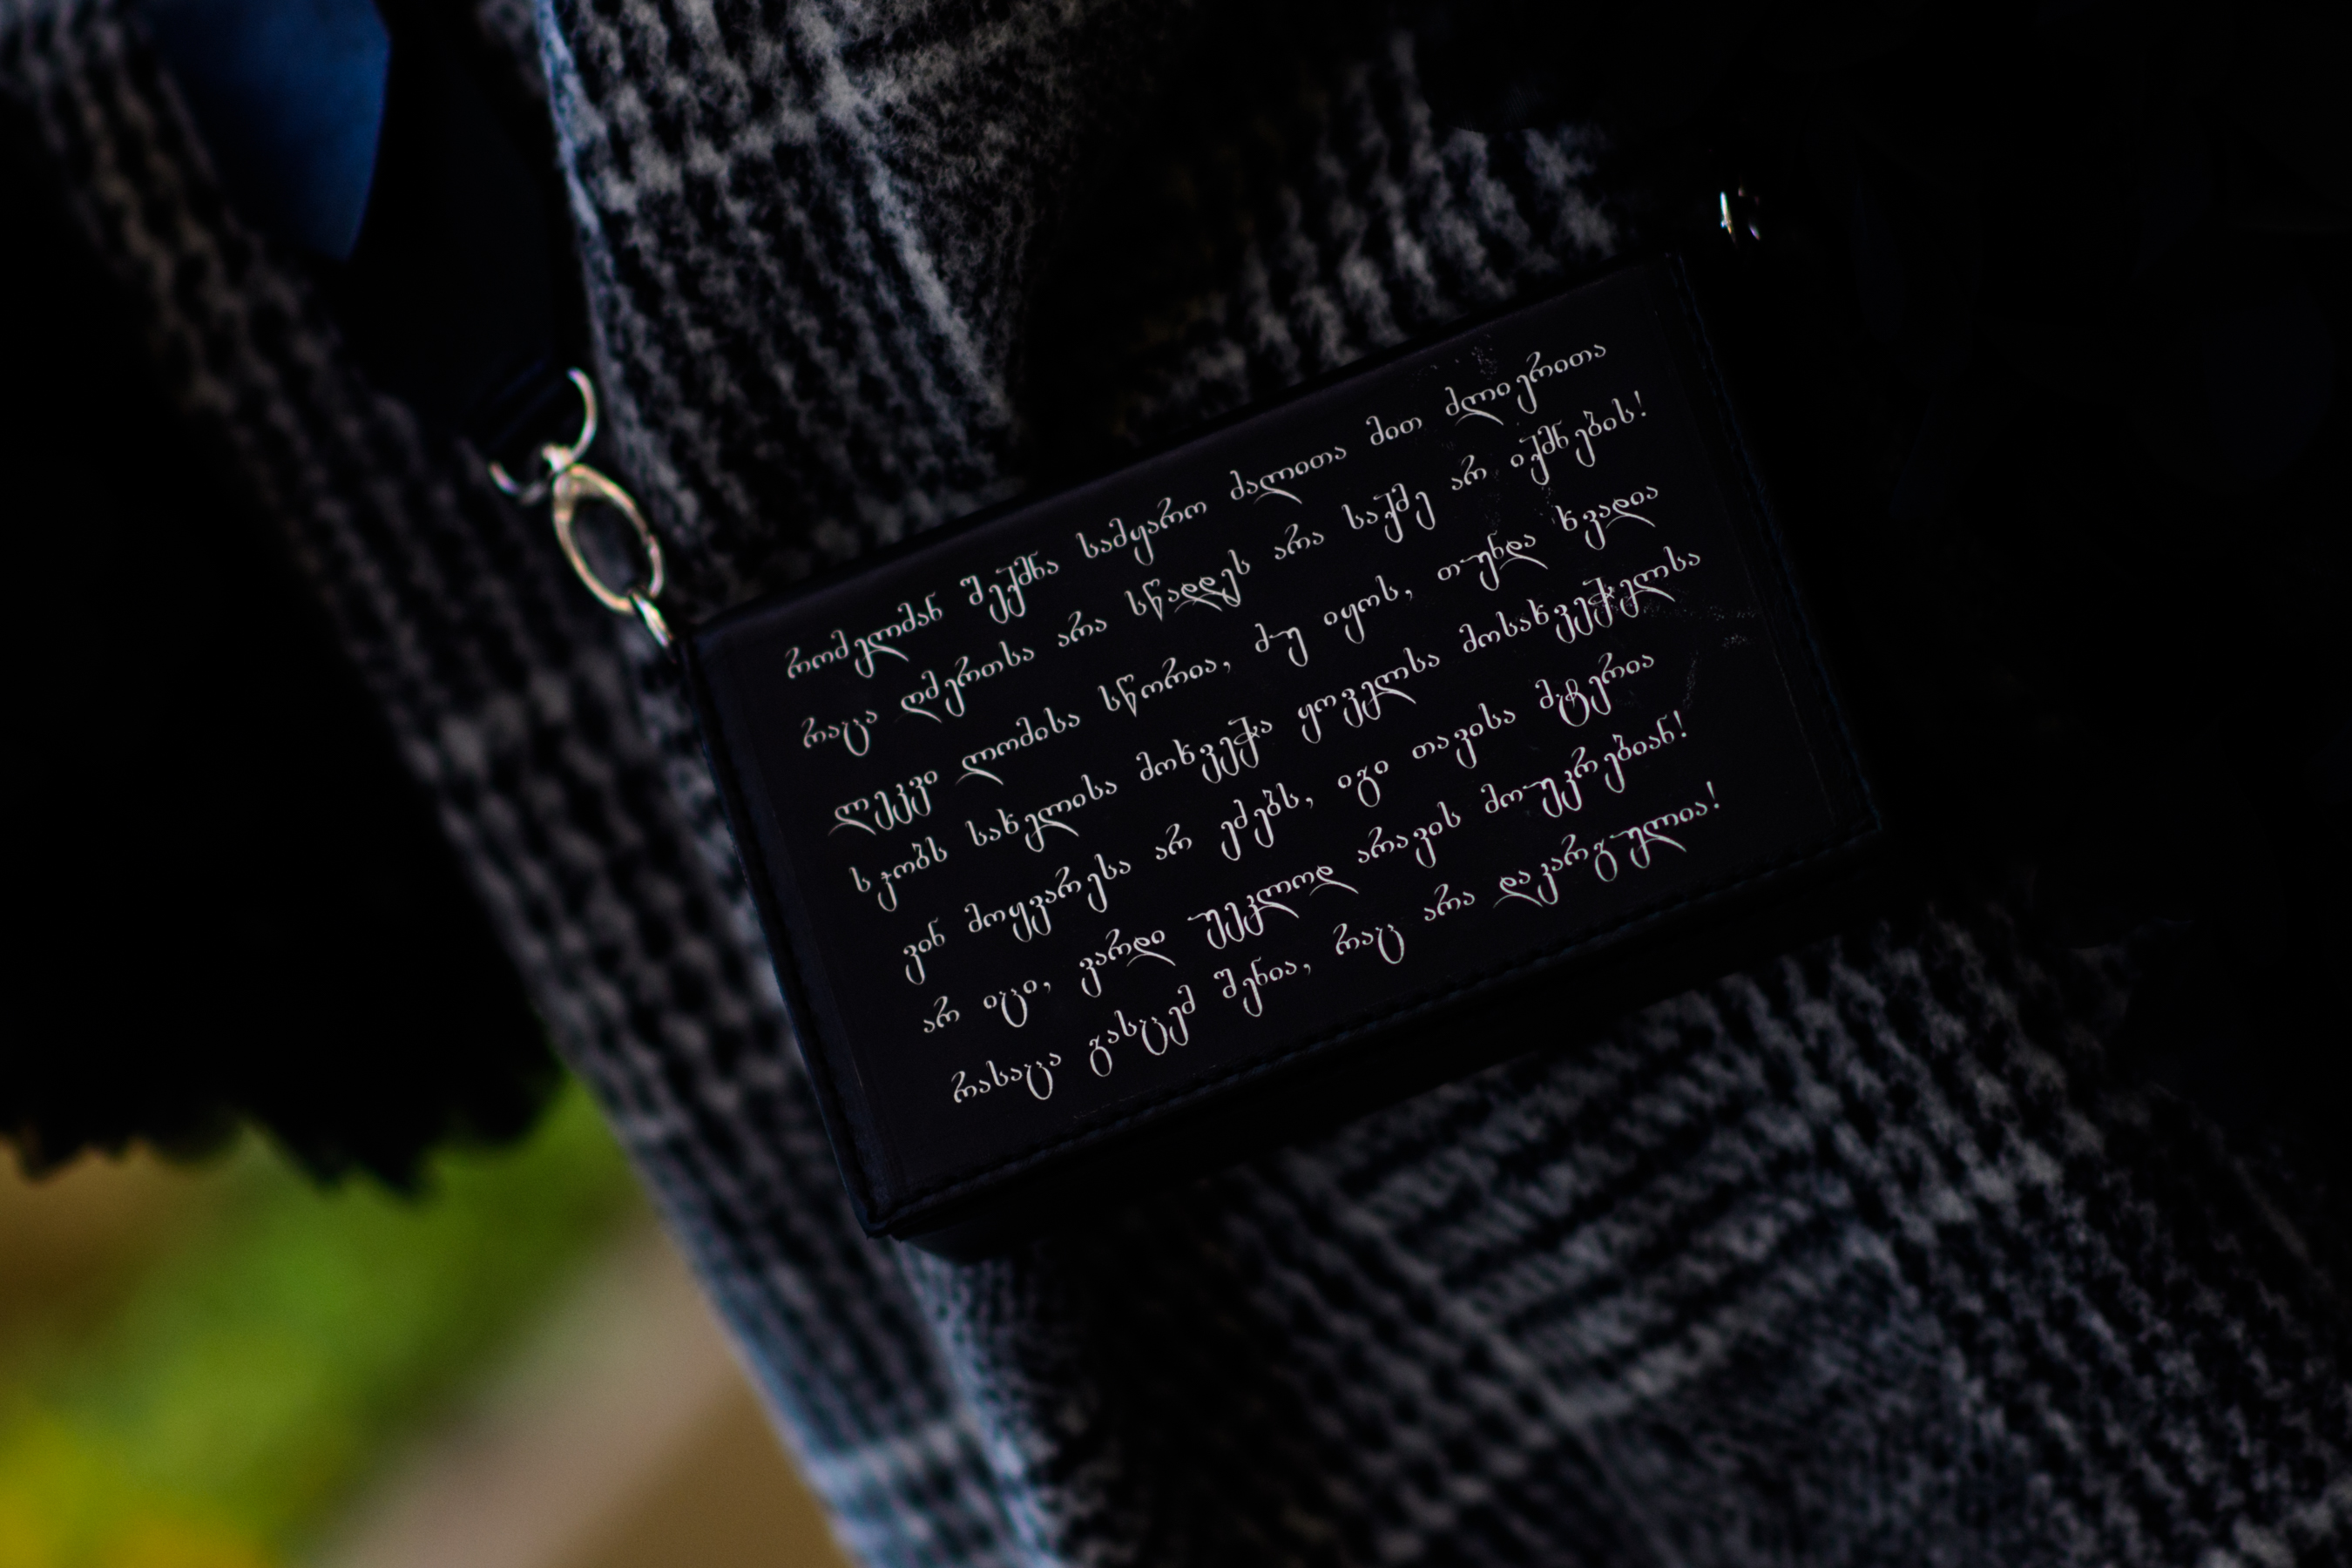 რომელმან შექმნა სამყარო ძალითა მით ძლიერითა
რაცა ღმერთსა არა სწადდეს არა საქმე არ იქმნების!
ლეკვი ლომისა სწორია, ძუ იყოს, თუნდა ხვადია
სჯობს სახელისა მოხვეჭა ყოველსა მოსახვეჭელსა
ვინ მოყვარესა არ ეძებს, იგი თავისა მტერია
არ იცი, ვარდი უეკლოდ არავის მოუკრებიან!
რასაცა გასცემ შენია, რაც არა დაკარგულია!